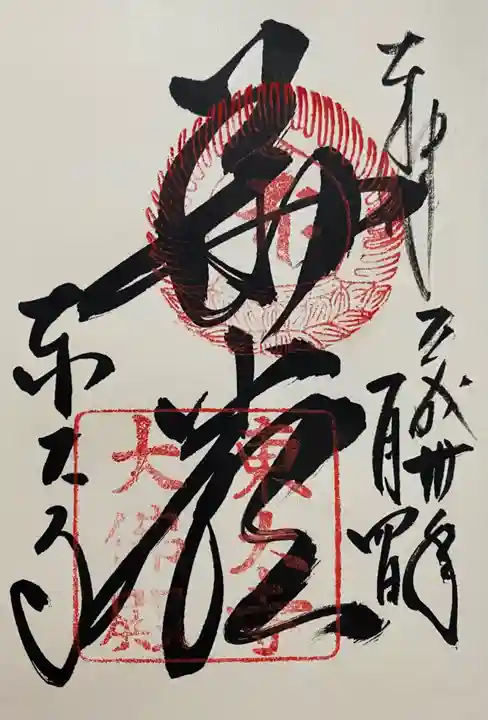 奉拝
平成卅年
月四日
華嚴
東大寺
東大寺
大佛殿